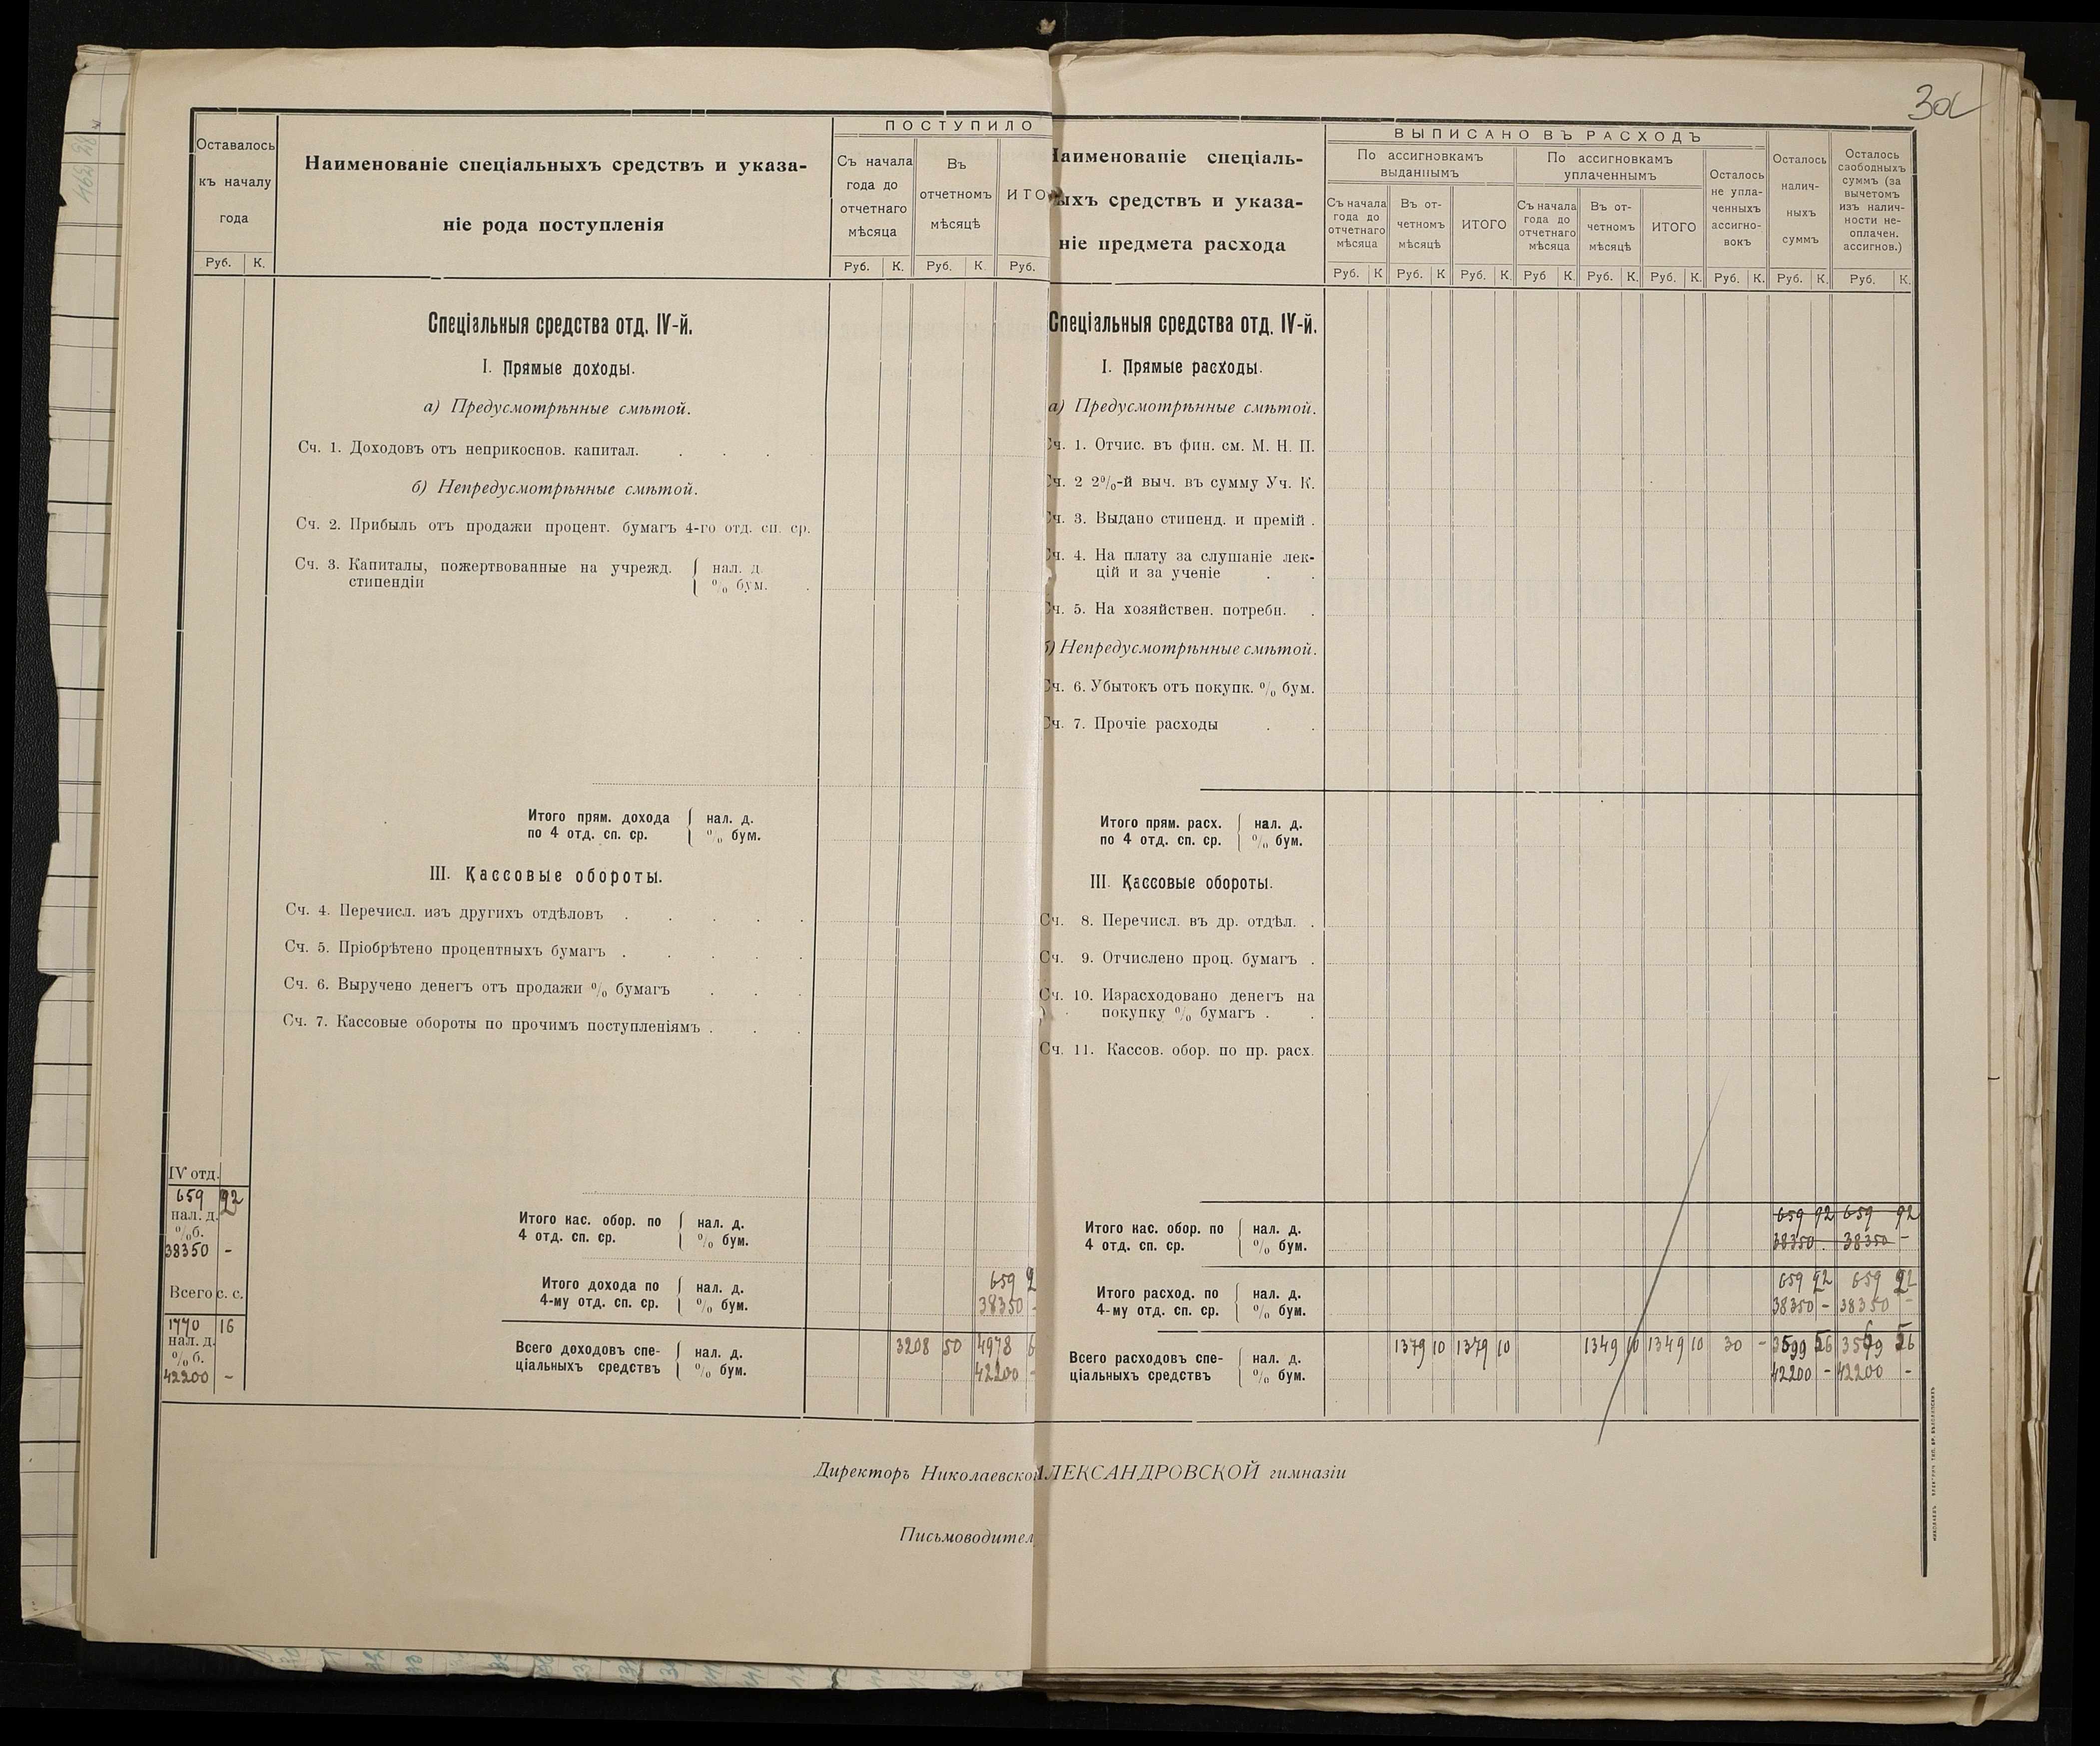 30
Оставалось
къ началу
года
Руб. К.
Наименованіе спеціальныхъ средствъ и указа-
ніе рода поступленія
ПОСТУПИЛО
Съ начала
года до
отчетнаго
мѣсяца
Въ
отчетномъ
мѣсяцѣ
ИТО
Руб. К. Руб. К. Руб.
Спеціальныя средства отд. IV-й.
I. Прямые доходы.
а) Предусмотрѣнные смѣтой.
Сч. 1. Доходовъ отъ неприкоснов. капитал. . . .
б) Непредусмотрѣнные смѣтой.
Сч. 2. Прибыль отъ продажи процент. бумагъ 4-го отд. сп. ср.
Сч. 3. Капиталы, пожертвованные на учрежд. { нал. д.
стипендіи { % бум. .
Итого прям. дохода { нал. д.
по 4 отд. сп. ср. { % бум.
III. Кассовые обороты.
Сч. 4. Перечисл. изъ другихъ отдѣловъ . . . . .
Сч. 5. Пріобрѣтено процентныхъ бумагъ . . . . .
Сч. 6. Выручено денегъ отъ продажи % бумагъ . . .
Сч. 7. Кассовые обороты по прочимъ поступленіямъ . . .
IV отд.
659 92
нал. д.
%б.
38350 -
Всего с. с.
1770 16
нал. д.
% б.
42200 -
Итого кас. обор. по { нал. д.
4 отд. сп. ср. { % бум.
Итого дохода по { нал. д. 659 9
4-му отд. сп. ср. { % бум. 38350 -
Всего доходовъ спе- { нал. д. 3208 50 4978 6
ціальныхъ средствъ { % бум. 42200 -
Директоръ Николаевско
Письмоводител
Наименованіе спеціаль-
ыхъ средствъ и указа-
ніе предмета расхода
ВЫПИСАНО ВЪ РАСХОДЪ
По ассигновкамъ
выданнымъ
По ассигновкамъ
уплаченнымъ
Съ начала
года до
отчетнаго
мѣсяца
Въ от-
четномъ
мѣсяцѣ
ИТОГО
Съ начала
года до
отчетнаго
мѣсяца
Въ от-
четномъ
мѣсяцѣ
ИТОГО
Осталось
не упла-
ченныхъ
ассигно-
вокъ
Осталось
налич-
ныхъ
суммъ
Осталось
свободныхъ
суммъ (за
вычетомъ
изъ налич-
ности не-
оплачен.
ассигнов.)
Руб. К Руб. К Руб. К. Руб К. Руб. К. Руб. К. Руб. К. Руб. К. Руб. К.
Спеціальныя средства отд. IV-й.
I. Прямые расходы.
а) Предусмотрѣнные смѣтой.
Сч. 1. Отчис. въ фин. см. М. Н. П.
Сч. 2 2%-й выч. въ сумму Уч. К.
Сч. 3. Выдано стипенд. и премій .
Сч. 4. На плату за слушаніе лек-
цій и за ученіе . .
Сч. 5. На хозяйствен. потребн. .
б) Непредусмотрѣнные смѣтой.
Сч. 6. Убытокъ отъ покупк. % бум.
Сч. 7. Прочіе расходы . .
Итого прям. расх. { нал. д.
по 4 отд. сп. ср. { % бум.
III. Кассовые обороты.
Сч. 8. Перечисл. въ др. отдѣл. .
Сч. 9. Отчислено проц. бумагъ .
Сч. 10. Израсходовано денегъ на
покупку % бумагъ . .
Сч. 11. Кассов. обор. по пр. расх.
Итого кас. обор. по { нал. д. 659 92 659 92
4 отд. сп. ср. { % бум. 38350 . 38350 -
Итого расход. по { нал. д. 659 92 659 92
4-му отд. сп. ср. { % бум. 38350 - 38350 -
Всего расходовъ спе- { нал. д. 1379 10 1379 10 1349 10 1349 10 30 - 3599 56 3569 56
ціальныхъ средствъ { % бум. 42200 - 42200 -
ЛЕКСАНДРОВСКОЙ гимназіи